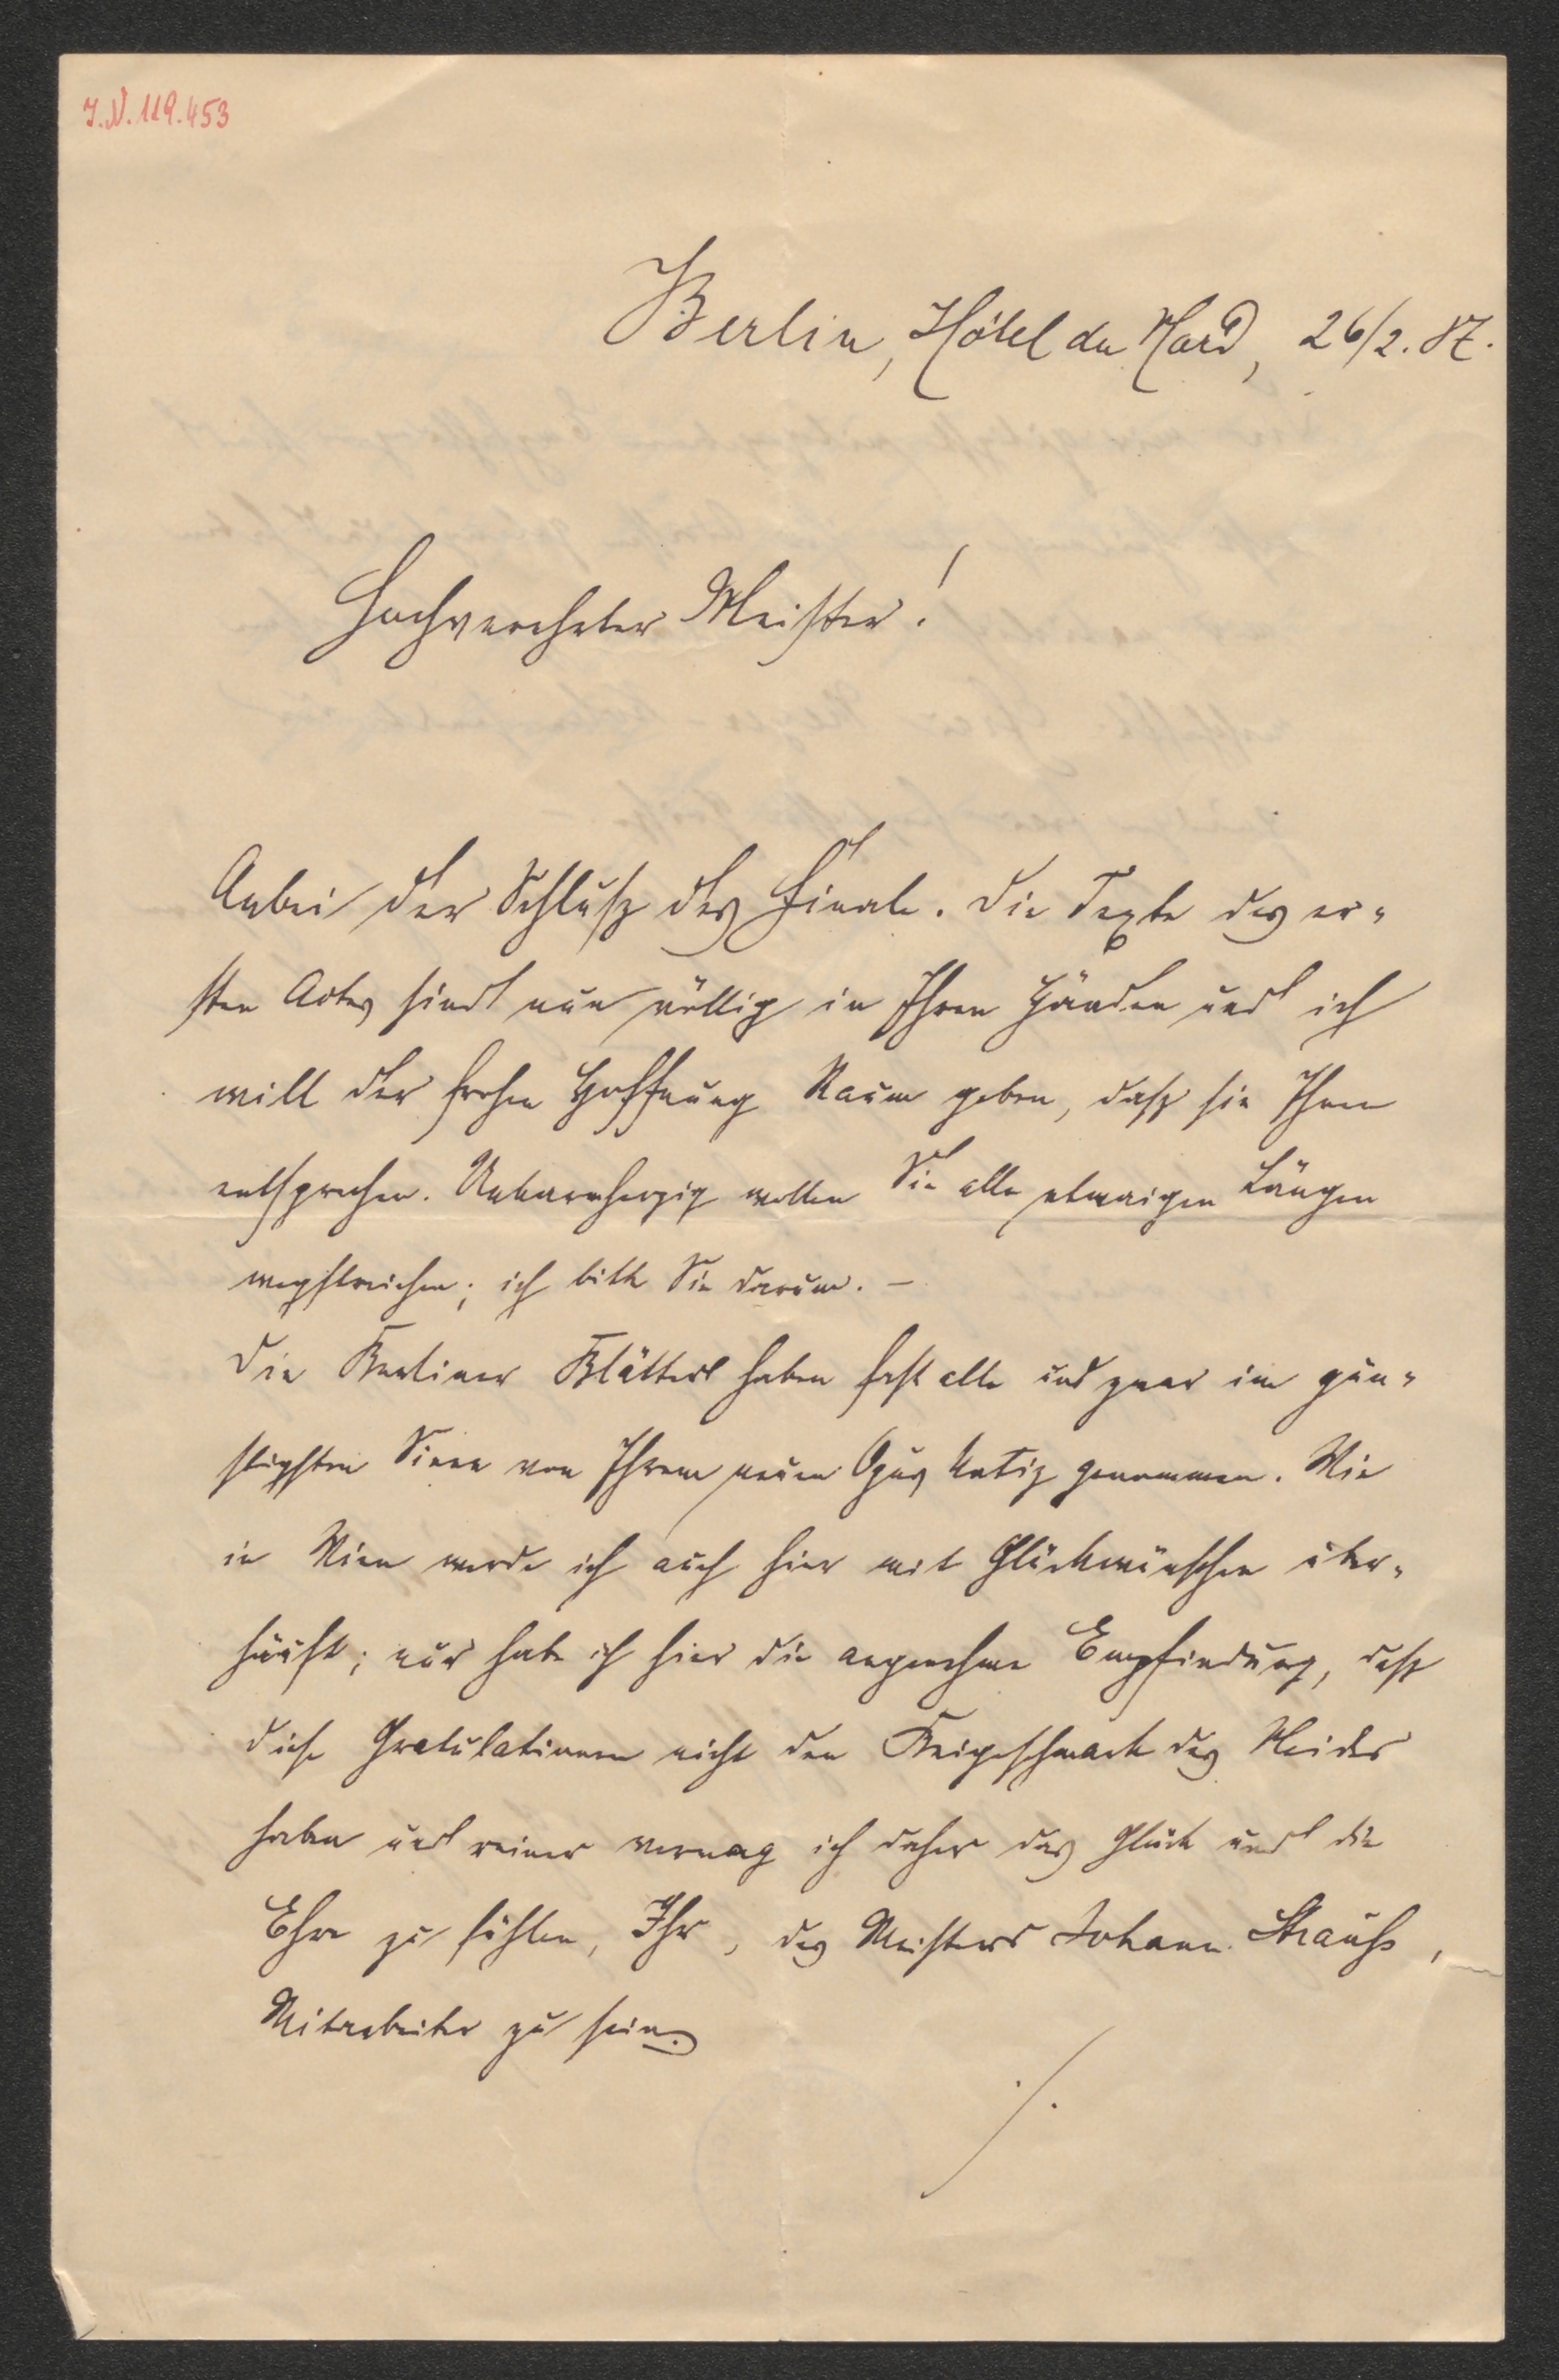 I.N. 119.453
Berlin, Hôtel du Nord, 26/2. 87.
Hochverehrter Meister!
Anbei der Schluß des Finale. Die Texte des er-
sten Actes sind nun völlig in Ihren Händen und ich
will der frohen Hoffnung Raum geben, daß sie Ihnen
entsprechen. Unbarmherzig wollen Sie alle etwaigen Längen
wegstreichen; ich bitte Sie darum. –
Die Berliner Blätter haben fast alle und zwar im gün-
stigsten Sinne von Ihrem neuen Opus Notiz genommen. Wie
in Wien werde ich auch hier mit Glückwünschen über-
häuft; nur habe ich hier die angenehme Empfindung, daß
diese Gratulationen nicht den Beigeschmack des Neides
haben und reiner vermag ich daher das Glück und die
Ehre zu fühlen, Ihr, des Meisters Johann Strauß,
Mitarbeiter zu sein.
./.